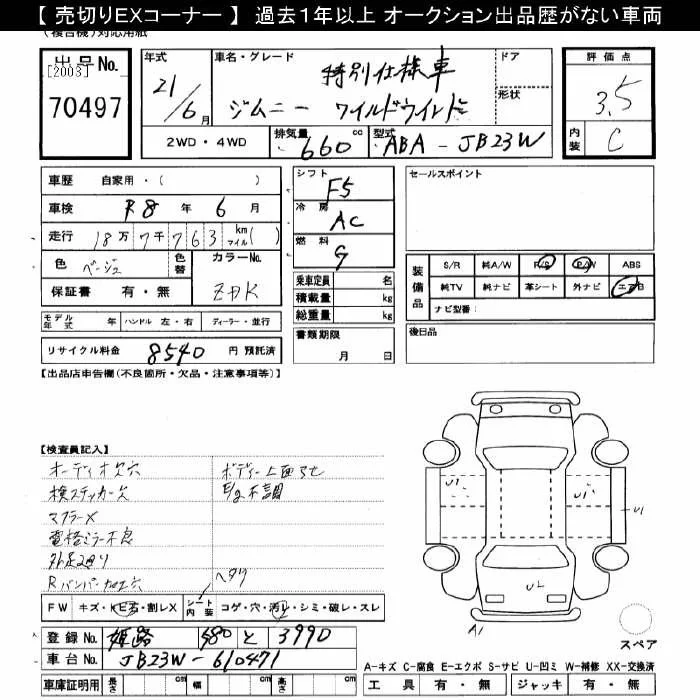 【 売切りEXコーナー 】 過去1年以上 オークション出品歴がない車両
(複合機)対応用紙
出品No.
[2003]
70497
年式
21/6月
車名・グレード
特別仕様車
ジムニー ワイルドウインド
ドア
形状
2WD・4WD
排気量 660 cc
型式 ABA-JB23W
評価点
3.5
内装 C
車歴 自家用・( )
車検 R8 年 6 月
走行 18万7千763 km マイル( )
色 ベージュ 色替
カラーNo. ZDK
保証書 有・無
モデル年式 年 ハンドル 左・右 ディーラー・並行
リサイクル料金 8540 円 預託済
シフト F5
冷房 AC
燃料 G
乗車定員 名
積載量 kg
総重量 kg
書類期限
月 日
セールスポイント
装備品
S/R 純A/W P/S P/W ABS
純TV 純ナビ 革シート 外ナビ エアB
ナビ型番:
後日品
【出品店申告欄(不良箇所・欠品・注意事項等)】
【検査員記入】
オーディオ欠穴
検ステッカー欠
マフラーX
電格ミラー不良
外足廻り
Rバンパー加工穴
ボディー上面
E/g不調
FW キズ・ヒビ・石・割レX
シート内装 コゲ・穴・汚レ・シミ・破レ・スレ
ヘタリ
登録No. 姫路 580 と 3990
車台No. JB23W-610471
車庫証明用 長さ cm 幅 cm 高さ cm
U1
U1
U1
U2
A1
スペア
A-キズ C-腐食 E-エクボ S-サビ U-凹ミ W-補修 XX-交換済
工具 有・無 ジャッキ 有・無